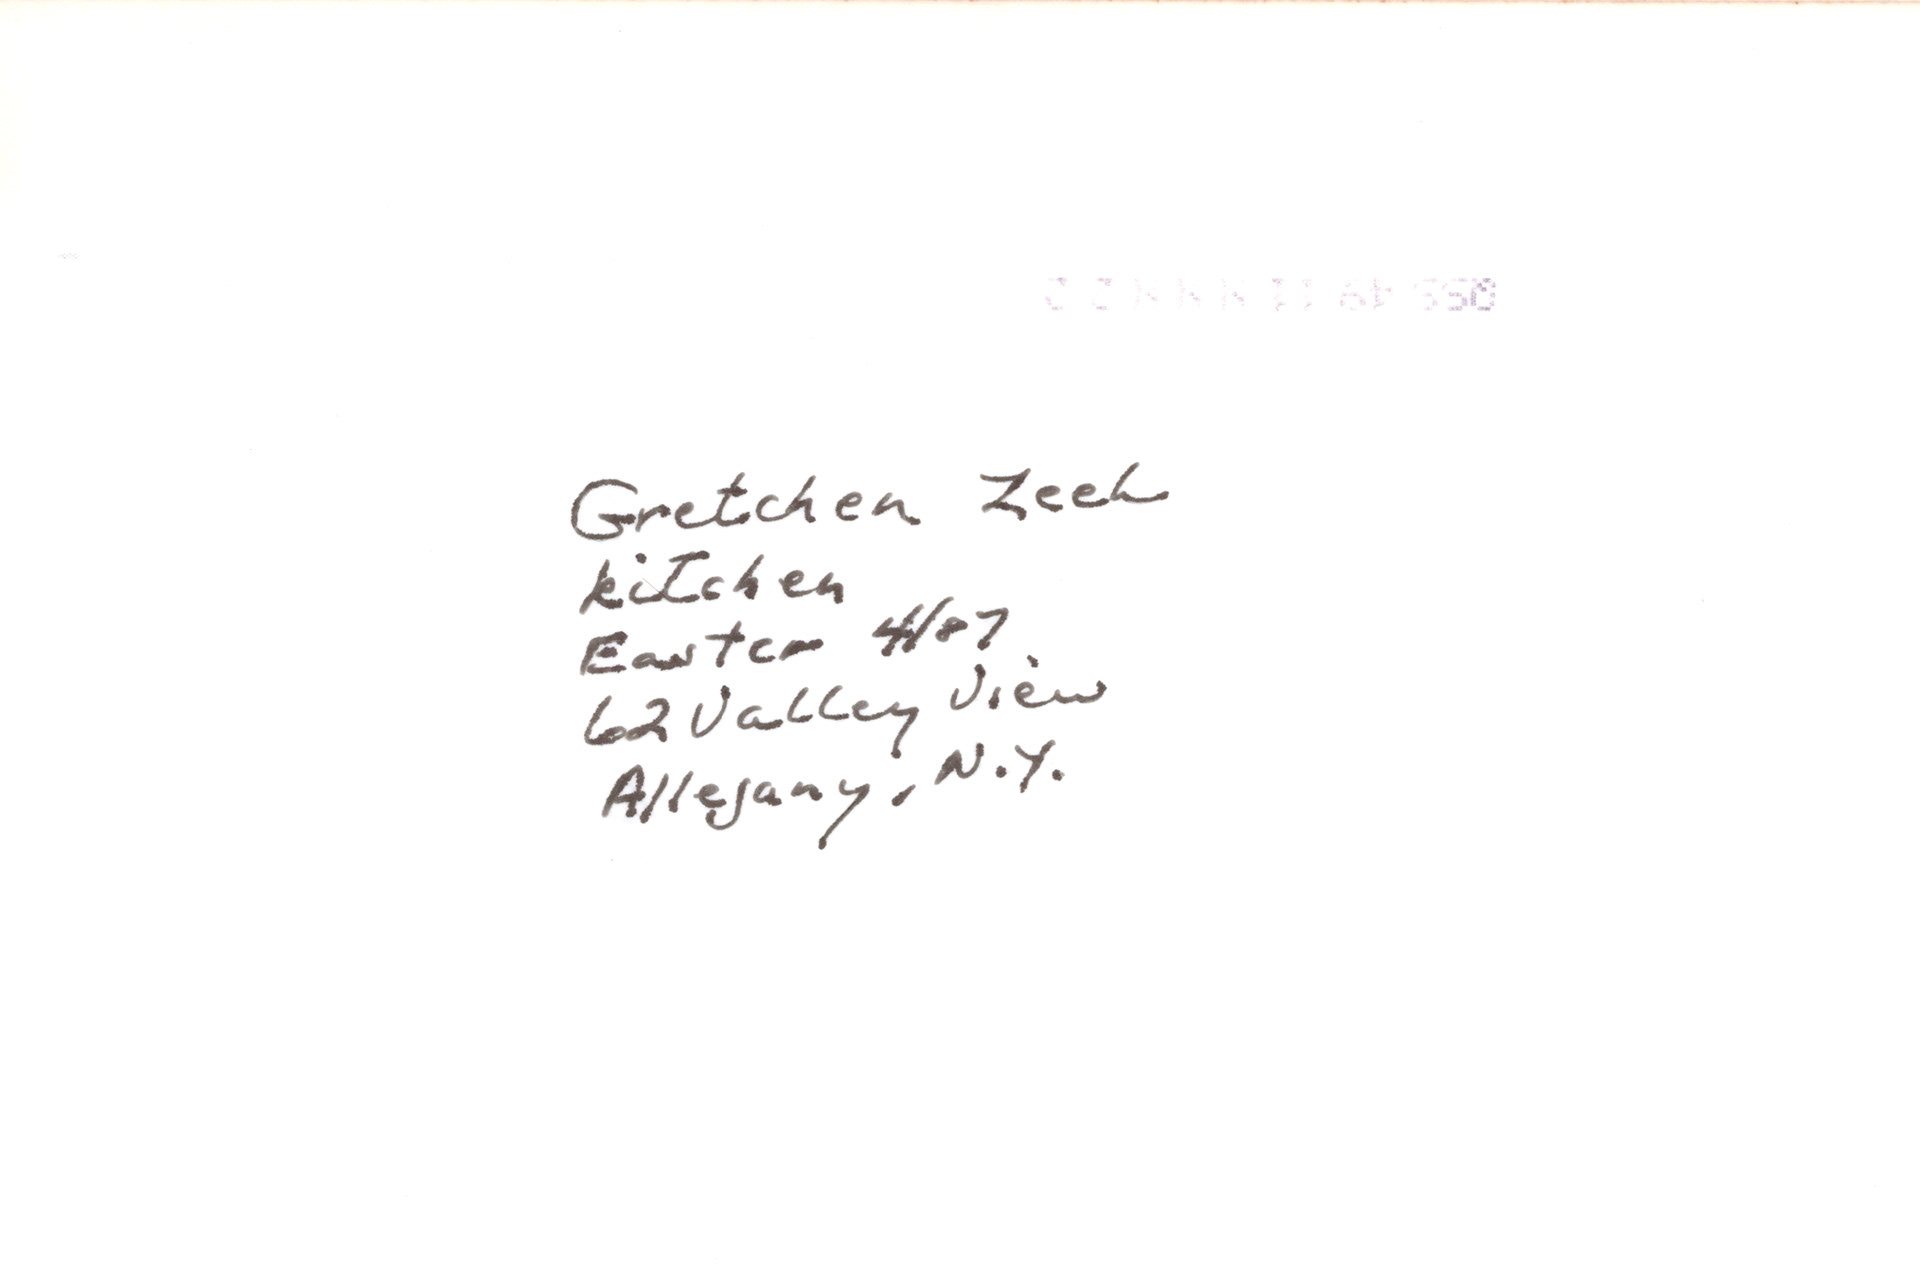 Gretchen Zeeh
kitchen
Easter 4/87
62 Valley View
Allegany, N.Y.